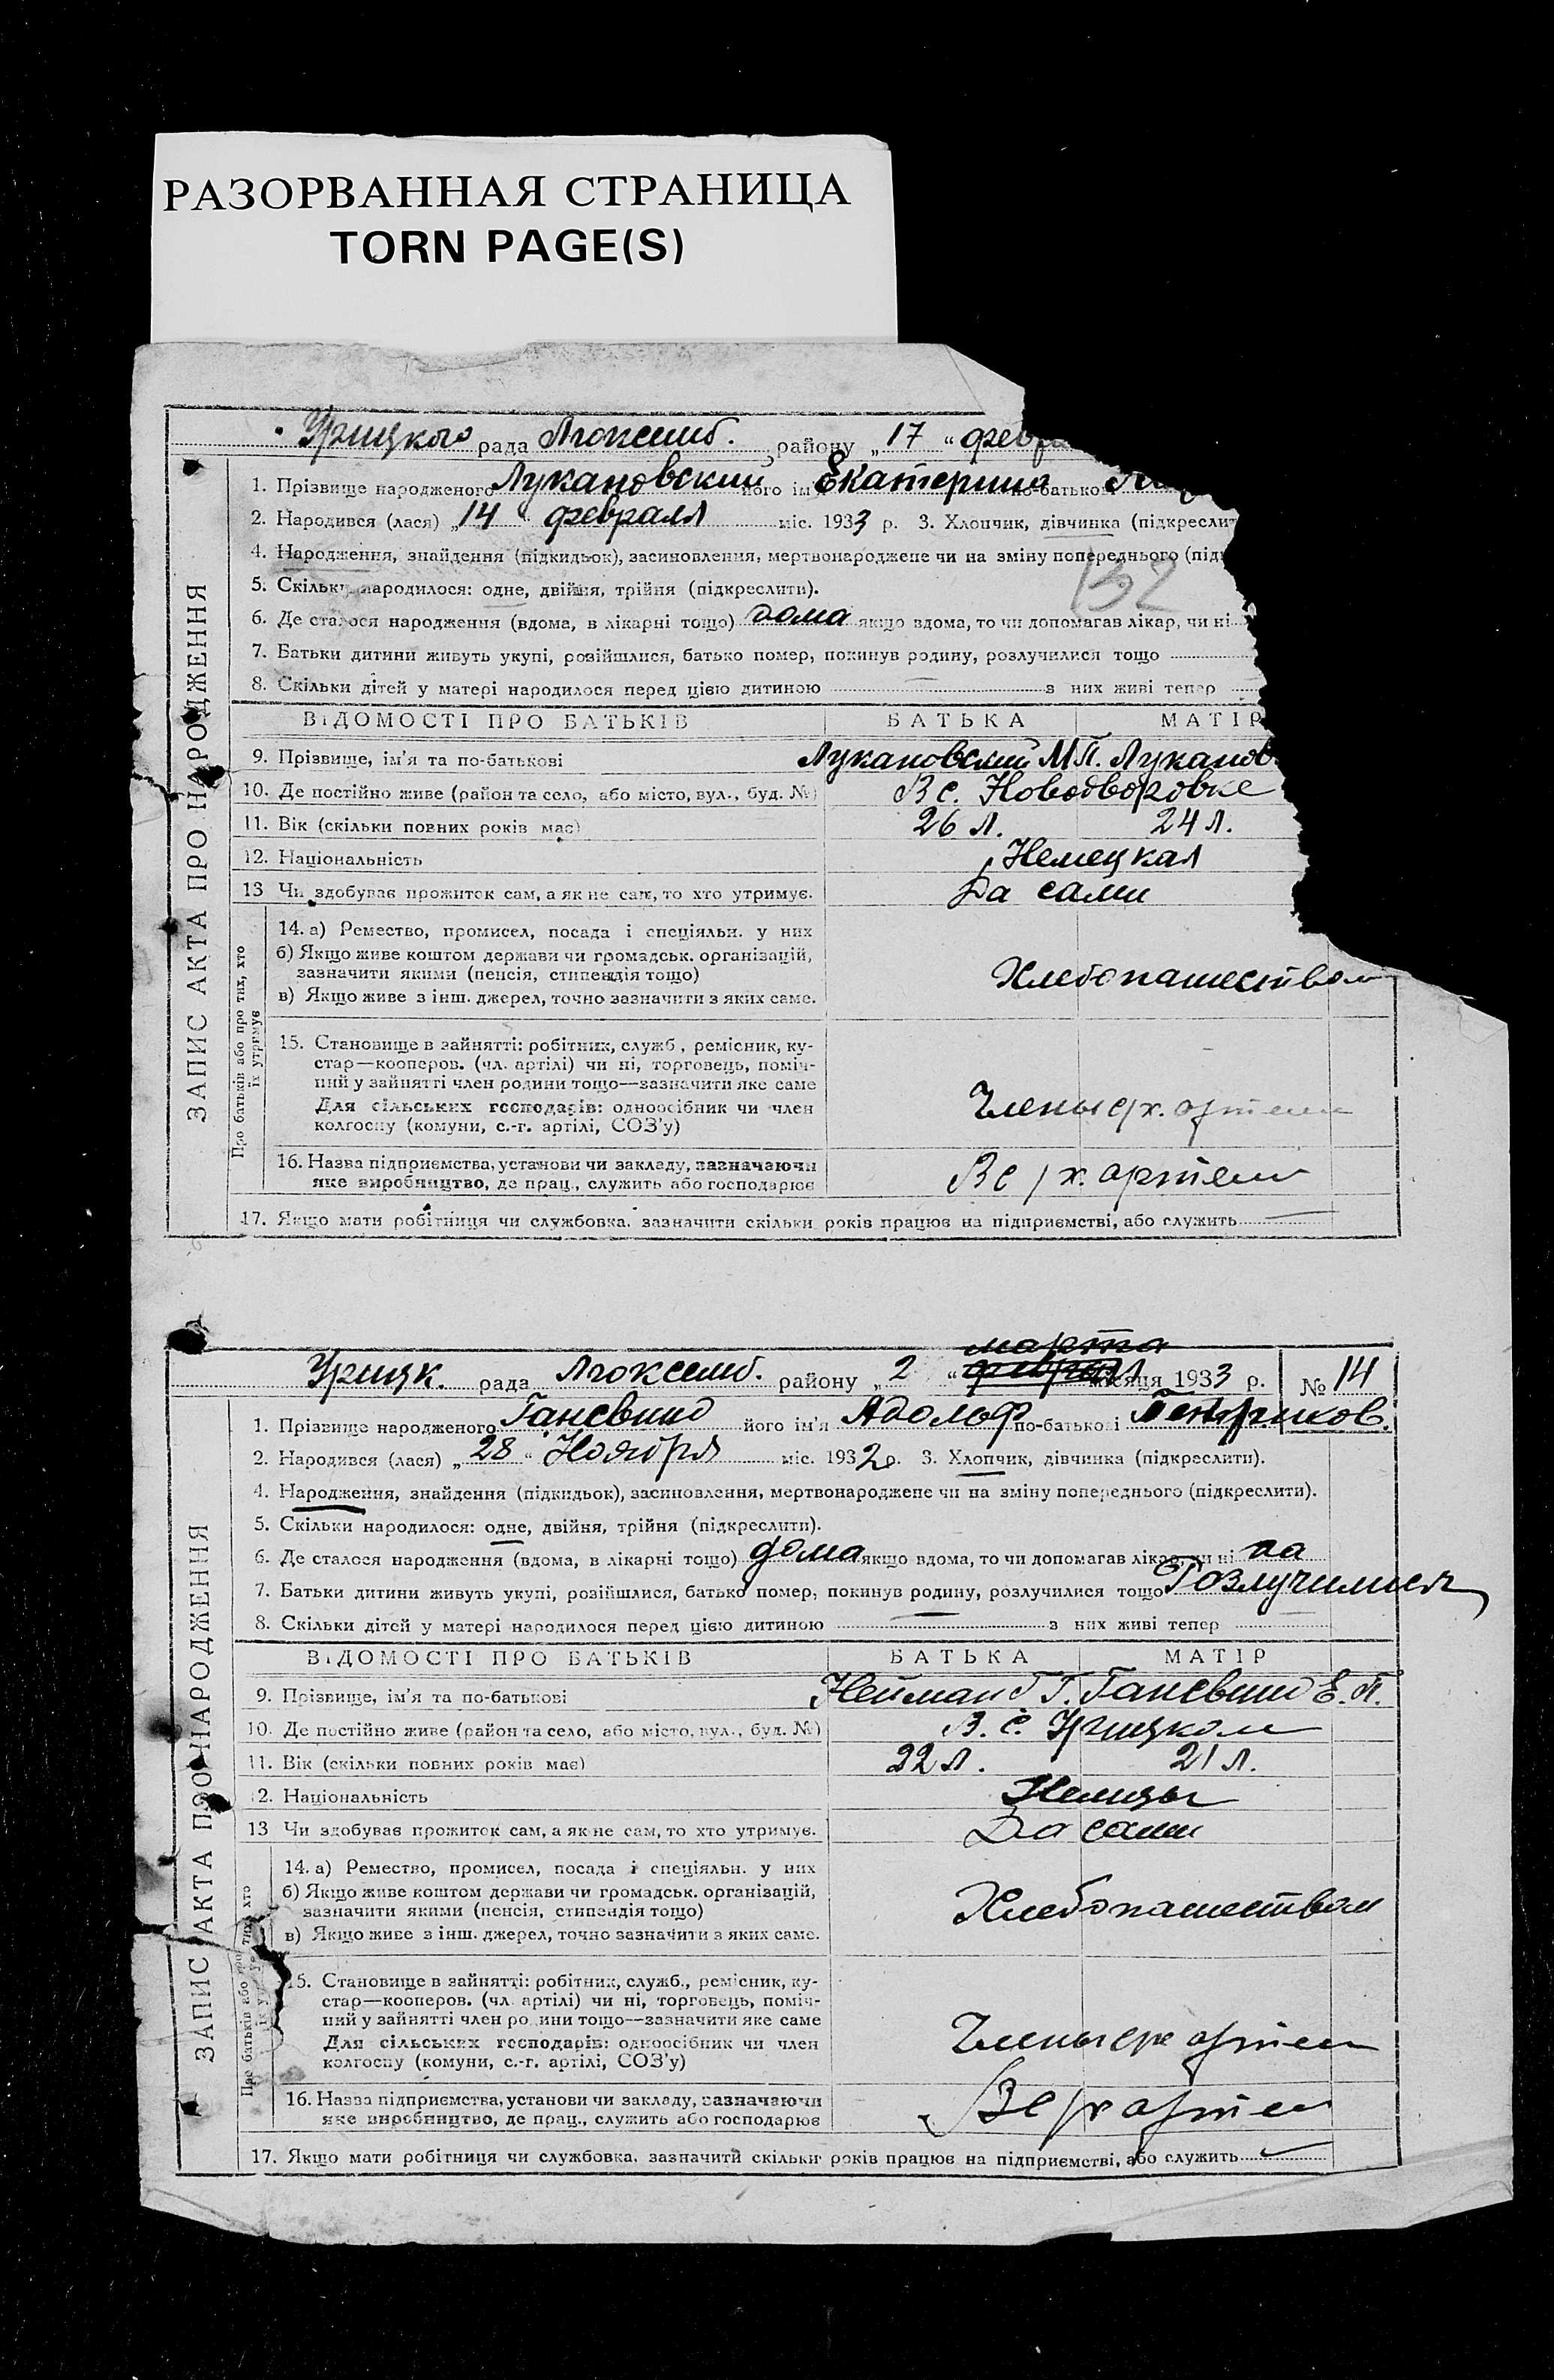 РАЗОРВАННАЯ СТРАНИЦА
TORN PAGE(S)
Урицкого рада Люксемб. району „17 “ февр
1. Прізвище народженого Лукановский його ім Екатерина по-батькові
2. Народився (лася) „14 “ февраля міс. 1933 р. 3. Хлопчик, дівчинка (підкреслит
4. Народження, знайдення (підкидьок), засиновлення, мертвонароджене чи на зміну попереднього (підк
132
5. Скільки народилося: одне, двійня, трійня (підкреслити).
6. Де сталося народження (вдома, в лікарні тощо) дома якщо вдома, то чи допомагав лікар, чи ні
7. Батьки дитини живуть укупі, розійшлися, батько помер, покинув родину, розлучилися тощо
8. Скільки дітей у матері народилося перед цією дитиною — з них живі тепер
ЗАПИС АКТА ПРО НАРОДЖЕННЯ
ВІДОМОСТІ ПРО БАТЬКІВ БАТЬКА МАТІР
9. Прізвище, ім'я та по-батькові Лукановский М П. Луканов
10. Де постійно живе (район та село, або місто, вул., буд. №) В с. Новодворовке
11. Вік (скільки повних років має) 26 л. 24 л.
12. Національність Немецкая
13 Чи здобуває прожиток сам, а як не сам, то хто утримує. Да сами
Про батьків або про тих, хто їх утримує
14. а) Ремество, промисел, посада і спеціяльн. у них
б) Якщо живе коштом держави чи громадськ. організацій,
зазначити якими (пенсія, стипендія тощо) Хлебопашеством
в) Якщо живе з інш. джерел, точно зазначити з яких саме.
15. Становище в зайнятті: робітник, служб., ремісник, ку-
стар—кооперов. (чл. артілі) чи ні, торговець, поміч-
ний у зайнятті член родини тощо—зазначити яке саме
Для сільських господарів: одноосібник чи член Члены с/х. артели
колгоспу (комуни, с.-г. артілі, СОЗ'у)
16. Назва підприємства, установи чи закладу, зазначаючи
яке виробництво, де прац., служить або господарює В с/х. артели
17. Якщо мати робітниця чи службовка, зазначити скільки років працює на підприємстві, або служить —
марта
Урицк. рада Люксемб. району „ 2 “ феврал місяця 1933 р. № 14
1. Прізвище народженого Ганевинд його ім'я Адольф по-батькові Генриков.
2. Народився (лася) „ 28 “ Ноября міс. 1932 р. 3. Хлопчик, дівчинка (підкреслити).
4. Народження, знайдення (підкидьок), засиновлення, мертвонароджене чи на зміну попереднього (підкреслити).
5. Скільки народилося: одне, двійня, трійня (підкреслити).
6. Де сталося народження (вдома, в лікарні тощо) дома якщо вдома, то чи допомагав лікар, чи ні да
7. Батьки дитини живуть укупі, розійшлися, батько помер, покинув родину, розлучилися тощо Розлучились
8. Скільки дітей у матері народилося перед цією дитиною — з них живі тепер —
ЗАПИС АКТА ПРО НАРОДЖЕННЯ
ВІДОМОСТІ ПРО БАТЬКІВ БАТЬКА МАТІР
9. Прізвище, ім'я та по-батькові Нейман Г Г. Ганевинд Е. П.
10. Де постійно живе (район та село, або місто, вул., буд. №) В. с. Урицком
11. Вік (скільки повних років має) 22 л. 21 л.
12. Національність Немцы
13 Чи здобуває прожиток сам, а як не сам, то хто утримує. Да сами
Про батьків або про тих, хто їх утримує
14. а) Ремество, промисел, посада і спеціяльн. у них
б) Якщо живе коштом держави чи громадськ. організацій,
зазначити якими (пенсія, стипендія тощо) Хлебопашеством
в) Якщо живе з інш. джерел, точно зазначити з яких саме.
15. Становище в зайнятті: робітник, служб., ремісник, ку-
стар—кооперов. (чл. артілі) чи ні, торговець, поміч-
ний у зайнятті член родини тощо—зазначити яке саме
Для сільських господарів: одноосібник чи член Члены с/х артели
колгоспу (комуни, с.-г. артілі, СОЗ'у)
16. Назва підприємства, установи чи закладу, зазначаючи
яке виробництво, де прац., служить або господарює В с/х артели
17. Якщо мати робітниця чи службовка, зазначити скільки років працює на підприємстві, або служить